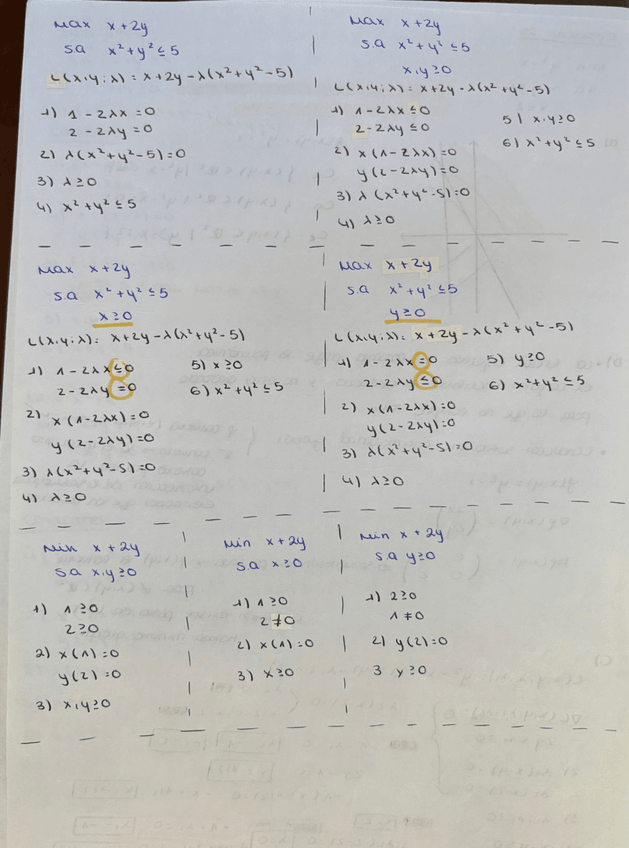 Max x+2y
s.a x²+y² ≤ 5
L(x,y;λ) = x+2y - λ(x²+y²-5)
1) 1-2λx = 0
2-2λy = 0
2) λ(x²+y²-5) = 0
3) λ ≥ 0
4) x²+y² ≤ 5
Max x+2y
s.a x²+y² ≤ 5
x,y ≥ 0
L(x,y;λ) = x+2y - λ(x²+y²-5)
1) 1-2λx ≤ 0
2-2λy ≤ 0
2) x(1-2λx) = 0
y(2-2λy) = 0
3) λ(x²+y²-5) = 0
4) λ ≥ 0
5) x,y ≥ 0
6) x²+y² ≤ 5
Max x+2y
s.a x²+y² ≤ 5
x ≥ 0
L(x,y;λ) = x+2y - λ(x²+y²-5)
1) 1-2λx ≤ 0
2-2λy = 0
2) x(1-2λx) = 0
y(2-2λy) = 0
3) λ(x²+y²-5) = 0
4) λ ≥ 0
5) x ≥ 0
6) x²+y² ≤ 5
Max x+2y
s.a x²+y² ≤ 5
y ≥ 0
L(x,y;λ) = x+2y - λ(x²+y²-5)
1) 1-2λx = 0
2-2λy ≤ 0
2) x(1-2λx) = 0
y(2-2λy) = 0
3) λ(x²+y²-5) = 0
4) λ ≥ 0
5) y ≥ 0
6) x²+y² ≤ 5
Min x+2y
s.a x,y ≥ 0
1) 1 ≥ 0
2 ≥ 0
2) x(1) = 0
y(2) = 0
3) x,y ≥ 0
Min x+2y
s.a x ≥ 0
1) 1 ≥ 0
2 ≠ 0
2) x(1) = 0
3) x ≥ 0
Min x+2y
s.a y ≥ 0
1) 2 ≥ 0
1 ≠ 0
2) y(2) = 0
3 y ≥ 0